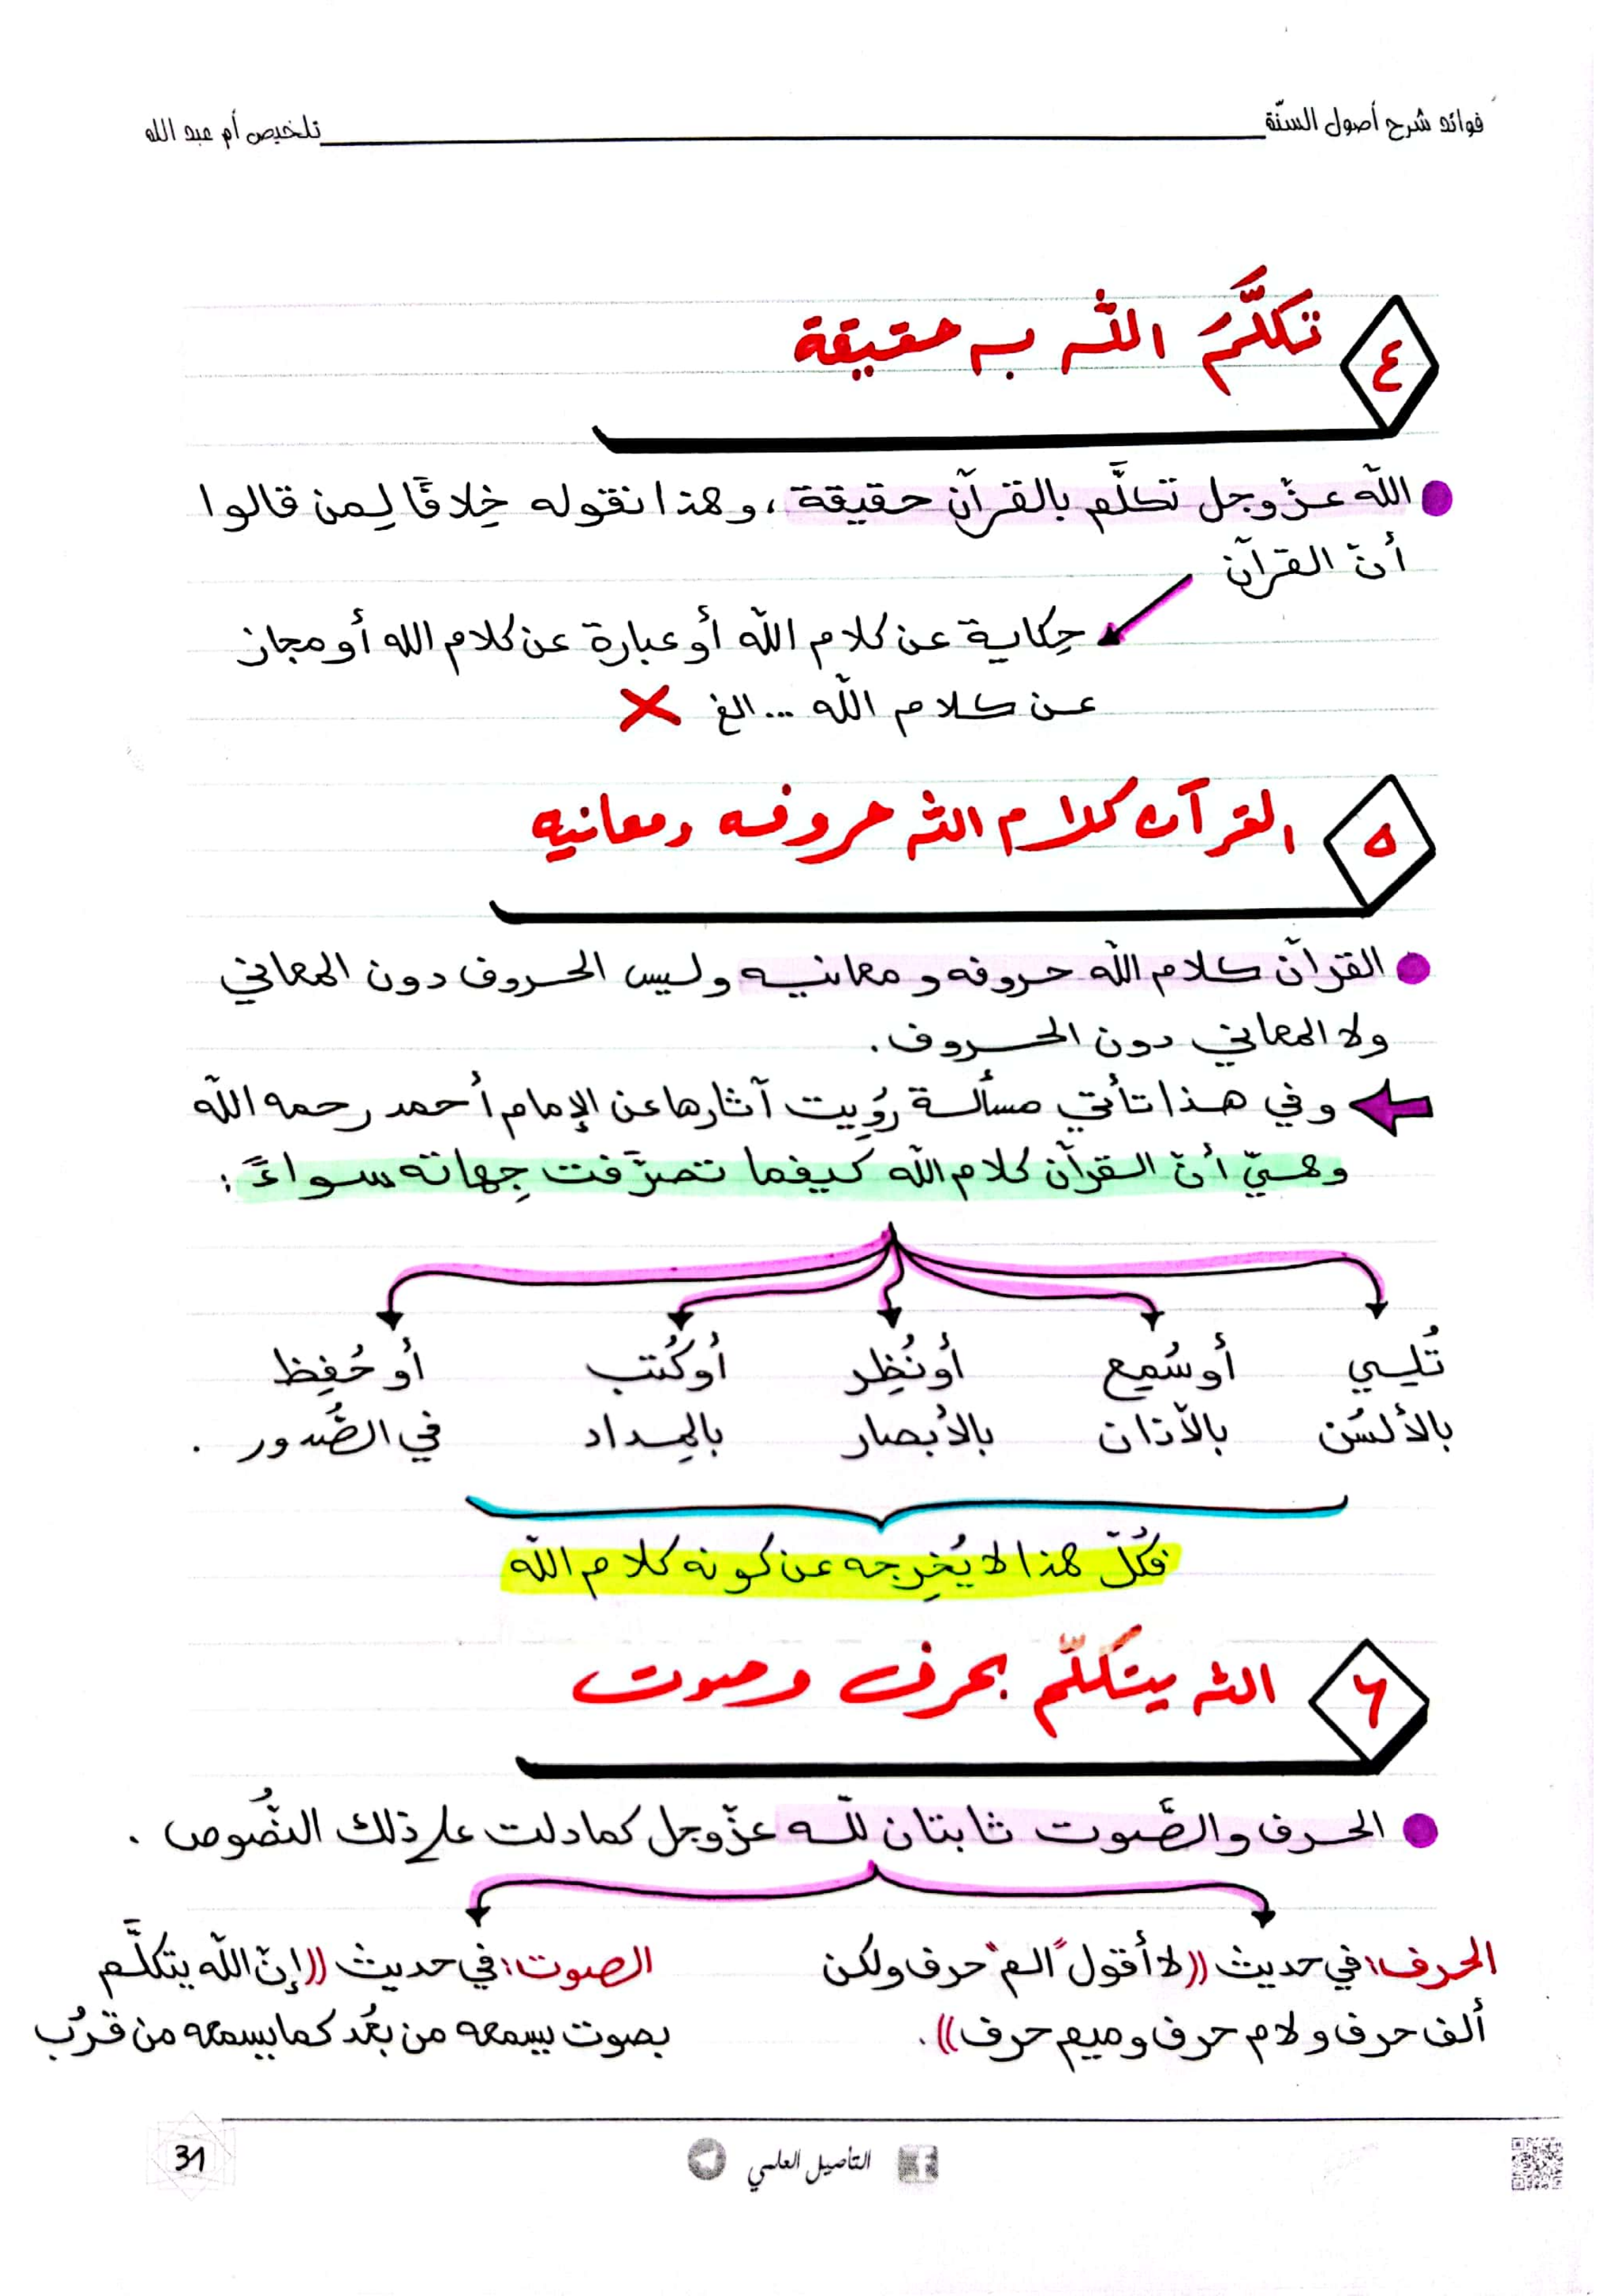 فوائد شرح أصول السنّة
تلخيص أم عبد الله
٤
تكلَّمَ الله به حقيقة
الله عزّوجل تكلَّم بالقرآن حقيقة، وهذا نقوله خِلافًا لِمن قالوا
أنّ القرآن
حِكاية عن كلام الله أو عبارة عن كلام الله أو مجاز
عن كلام الله ... الخ
٥
القرآن كلام الله حروفه ومعانيه
القرآن كلام الله حروفه و معانيه وليس الحروف دون المعاني
ولا المعاني دون الحروف.
وفي هذا تأتي مسألة رُوِيت آثارها عن الإمام أحمد رحمه الله
وهيّ أنّ القرآن كلام الله كيفما تصرَّفت جِهاته سواءً:
تُلِي أو سُمِع أو نُظِر أو كُتب أو حُفِظ
بالألسُن بالآذان بالأبصار بالمِداد في الصُّدور.
فكُلّ هذا لا يُخرِجه عن كونه كلام الله
٦
الله يتكَلّم بحرف وصوت
الحرف والصَّوت ثابتان لله عزّوجل كما دلت على ذلك النصُّوص.
الحرف: في حديث ((لا أقول "الم" حرف ولكن
ألف حرف ولام حرف وميم حرف)).
الصوت: في حديث ((إنّ الله يتكلَّم
بصوت يسمعه من بعُد كما يسمعه من قرُب
التأصيل العلمي
31